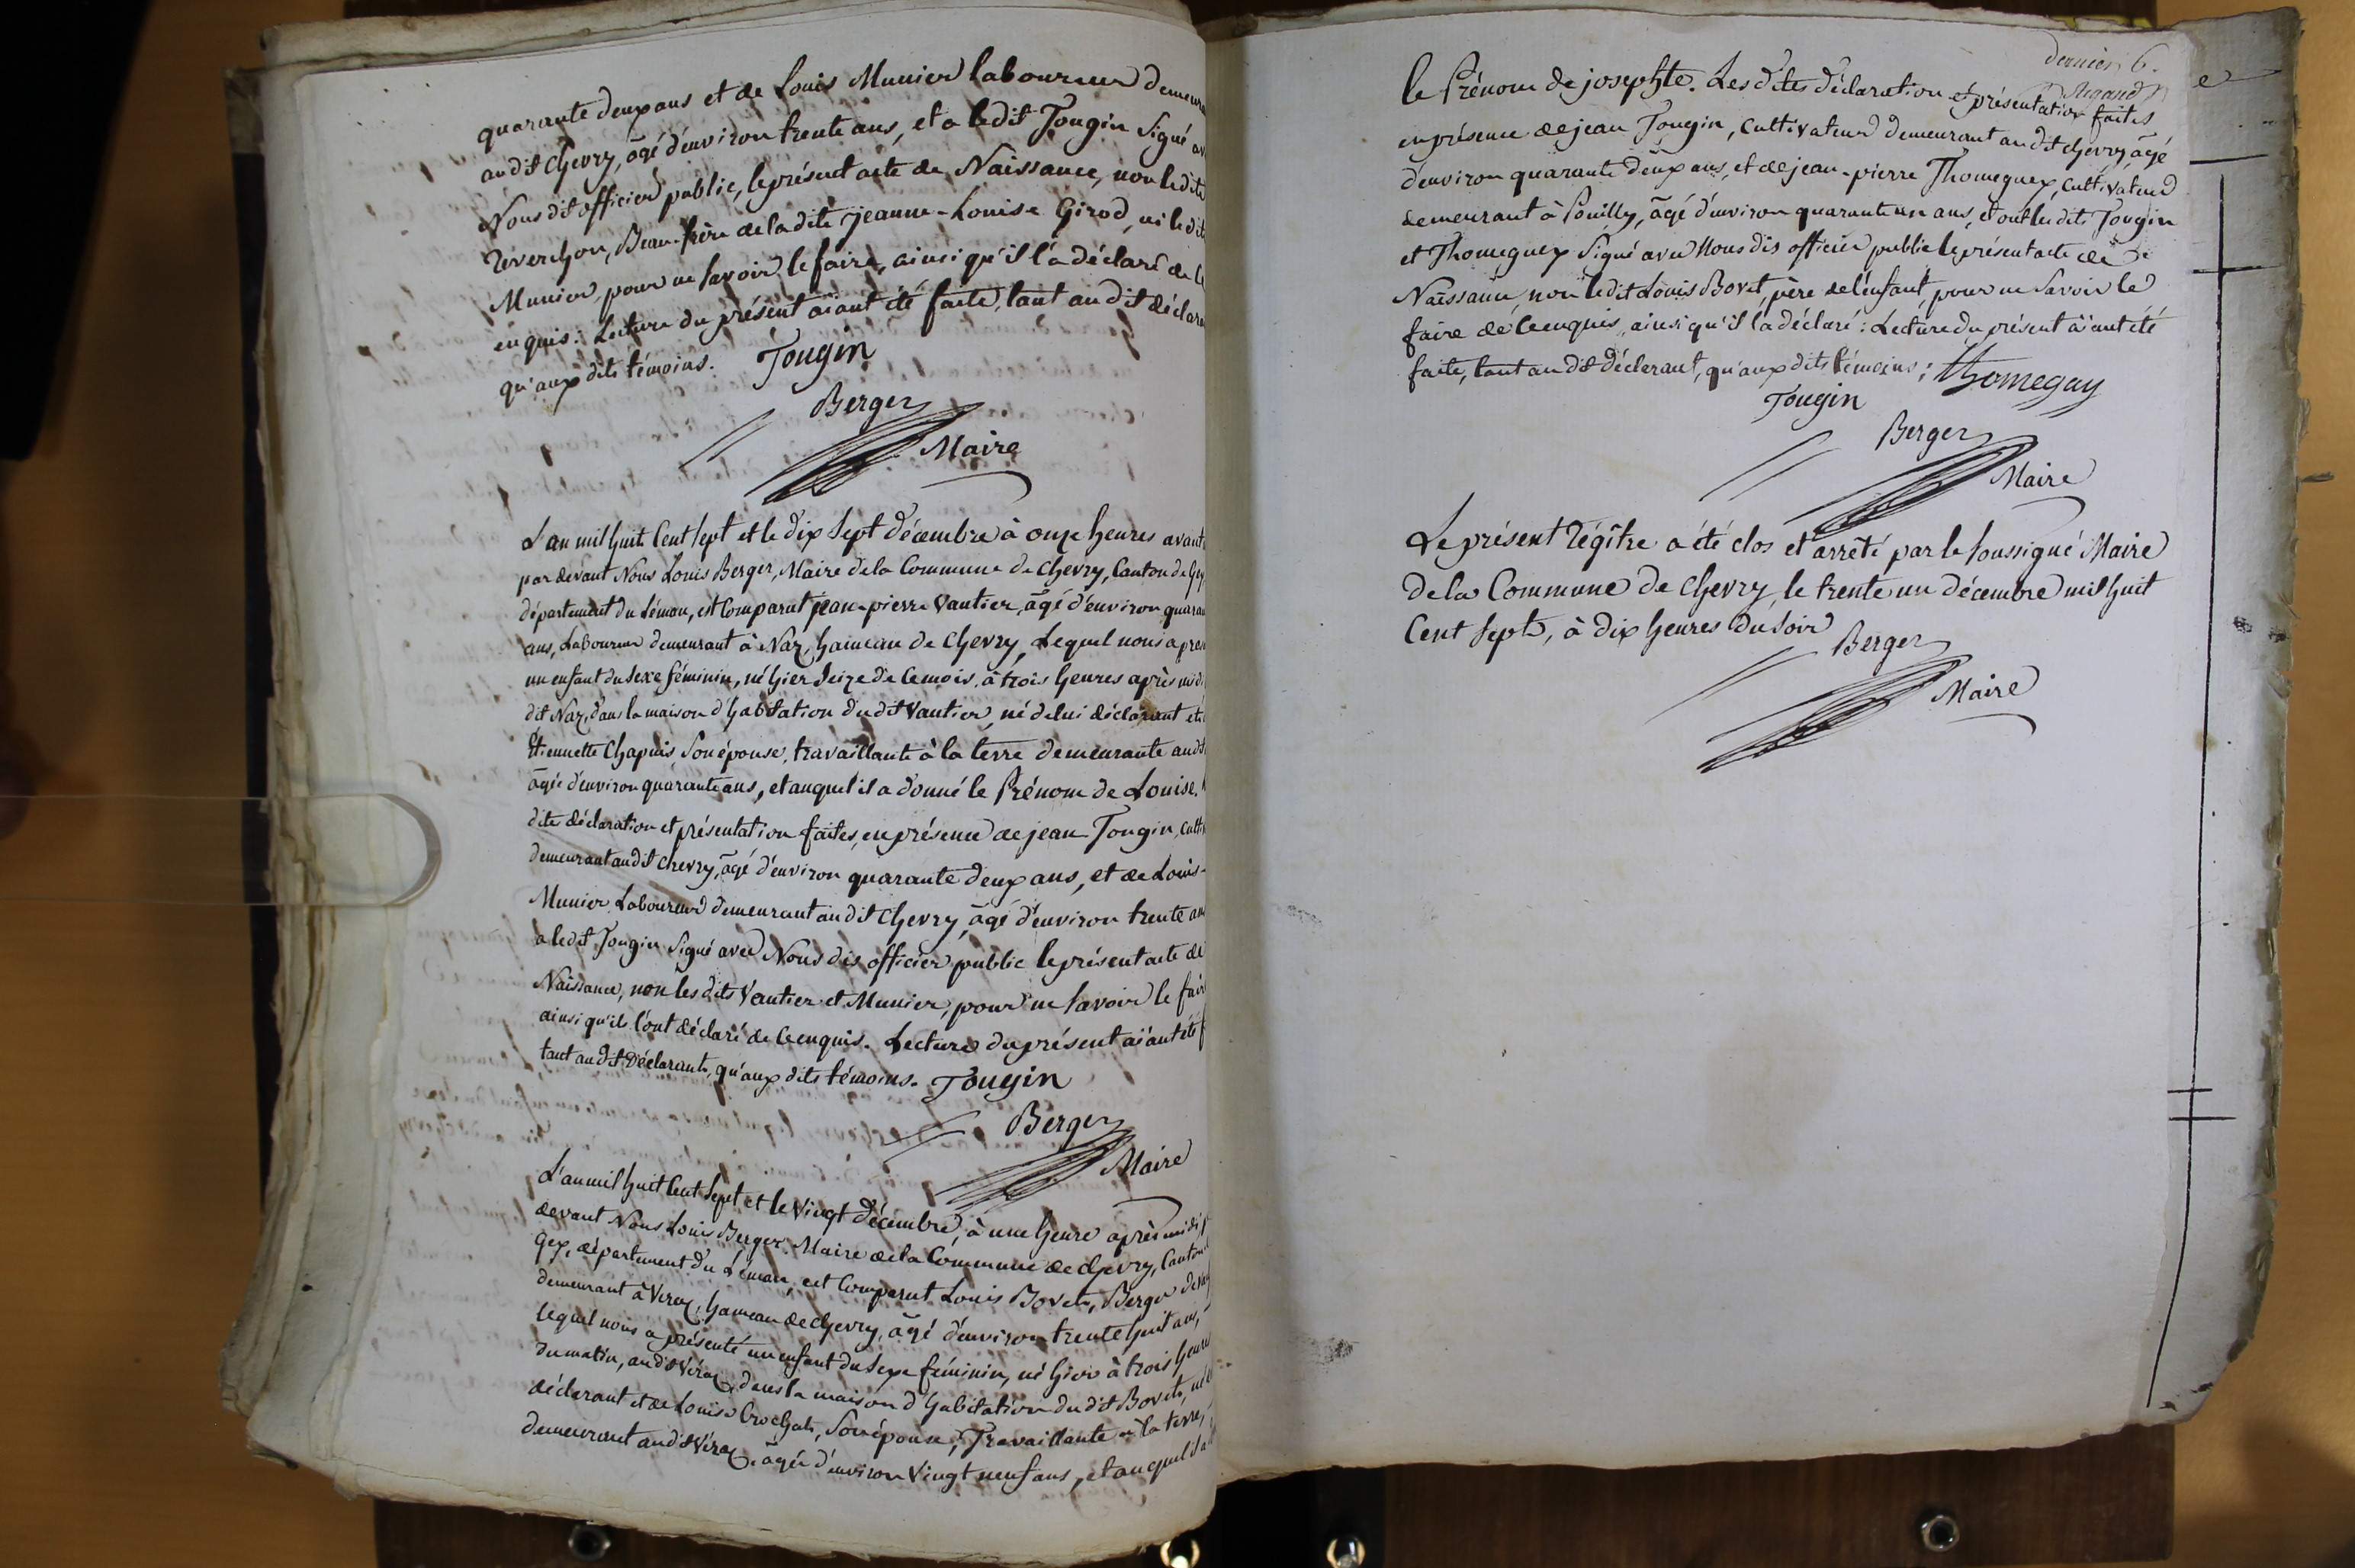 quarante deux ans et de Louis Munier laboureur demeura
au dit Chevry, âgé d'environ trente ans, et a le dit Tougin Signé av
Nous dit officier public, le présent acte de Naissance, non le dit
Reverchon, Beau-frère de la dite jeanne-Louise Girod, ni le dit
Munier, pour ne savoir le faire, ainsi qu'il l'a déclaré de ce
enquis: Lecture du présent aïant été faite, tant au dit déclara
qu'aux dits témoins. Tougin
Berger
Maire
L'an mil huit Cent Sept et le dix Sept décembre à onze heures avant
par devant Nous Louis Berger, Maire de la Commune de Chevry, Canton de Gex
département du Léman, est Comparut jean-pierre Vautier, âgé d'environ quaran
ans, Laboureur demeurant à Naz, hameau de Chevry, Lequel nous a prése
un enfant du Sexe féminin, né hier Seize de Ce mois, à trois heures après midi
dit Naz, dans la maison d'habitation du dit Vautier, né de lui déclarant et
Etiennette Chapuis, Son épouse, travaillante à la terre demeurante au dit
âgée d'environ quarante ans, et auquel il a donné le Prénom de Louise.
dite déclaration et présentation faites, en présence de jean Tougin, culti
demeurant au dit Chevry, âgé d'environ quarante deux ans, et de Louis-
Munier Laboureur demeurant au dit Chevry, âgé d'environ trente ans
a le dit Tougin Signé avec Nous dis officier public le présent acte de
Naissance, non les dits Vautier et Munier, pour ne savoir le faire
ainsi qu'ils l'ont déclaré de Ce enquis. Lecture du présent aïant été f
tant au dit Déclarant, qu'aux dits témoins. Tougin
Berger
Maire
L'an mil huit Cent Sept et le Vingt décembre, à une heure après midi p
devant Nous Louis Berger Maire de la Commune de Chevry, Canton
Gex, département du Léman, est Comparut Louis Bovet, Berger de
demeurant à Véraz, hameau de Chevry, âgé d'environ trente huit ans,
lequel nous a présenté un enfant du Sexe féminin, né hier à trois heures
du matin, au dit Véraz, dans la maison d'habitation du dit Bovet, né
déclarant et de Louise Crochat, Son épouse, Travaillante à la terre,
demeurant au dit Véraz, âgée d'environ Vingt neuf ans, et auquel il a
dernier 6.
le Prénom de josephte. Les dites déclaration et présentation faites
en présence de jean Tougin, Cultivateur demeurant au dit Chevry, âgé
d'environ quarante deux ans, et de jean-pierre Thomeguex, Cultivateur
demeurant à Pouilly, âgé d'environ quarante un ans, et ont les dits Tougin
et Thomeguex Signé avec Nous dis officier public le présent acte de
Naissance, non le dit Louis Bovet, père de l'enfant, pour ne Savoir le
faire de Ce enquis, ainsi qu'il l'a déclaré: Lecture du présent aïant été
faite, tant au dit déclarant, qu'aux dits témoins; Thomegay
Tougin
Berger
Maire
Le présent régître a été clos et arrêté par le Soussigné Maire
de la Commune de Chevry, le trente un décembre mil huit
Cent Sept, à dix heures du Soir
Berger
Maire